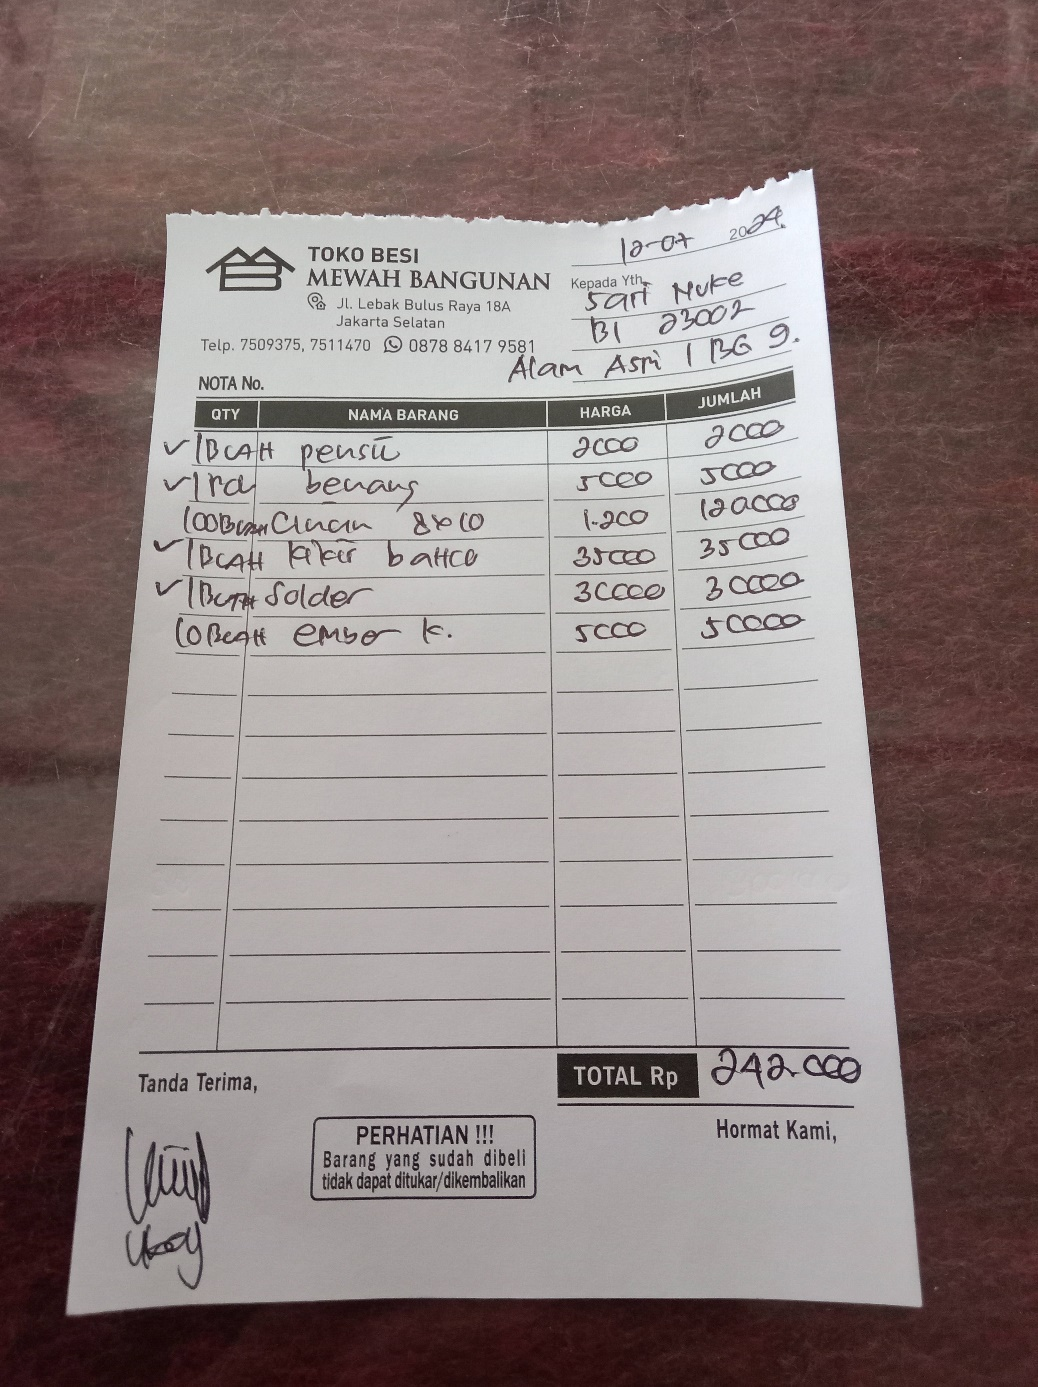 TOKO BESI
MEWAH BANGUNAN
Jl. Lebak Bulus Raya 18A
Jakarta Selatan
Telp. 7509375, 7511470 0878 8417 9581
12-07 2024.
Kepada Yth,
Sari Nuke
BI 23002
Alam Asri 1 BG 9.
NOTA No.
QTY NAMA BARANG HARGA JUMLAH
✓ 1 BUAH pensil 2000 2000
✓ 1 rol benang 5000 5000
100 Buah Cincin 8x10 1.200 120000
✓ 1 BUAH kikir 35000 35000
✓ 1 BUAH Solder 30000 30000
10 BUAH ember k. 5000 50000
TOTAL Rp 242.000
Tanda Terima,
Hormat Kami,
PERHATIAN !!!
Barang yang sudah dibeli
tidak dapat ditukar/dikembalikan